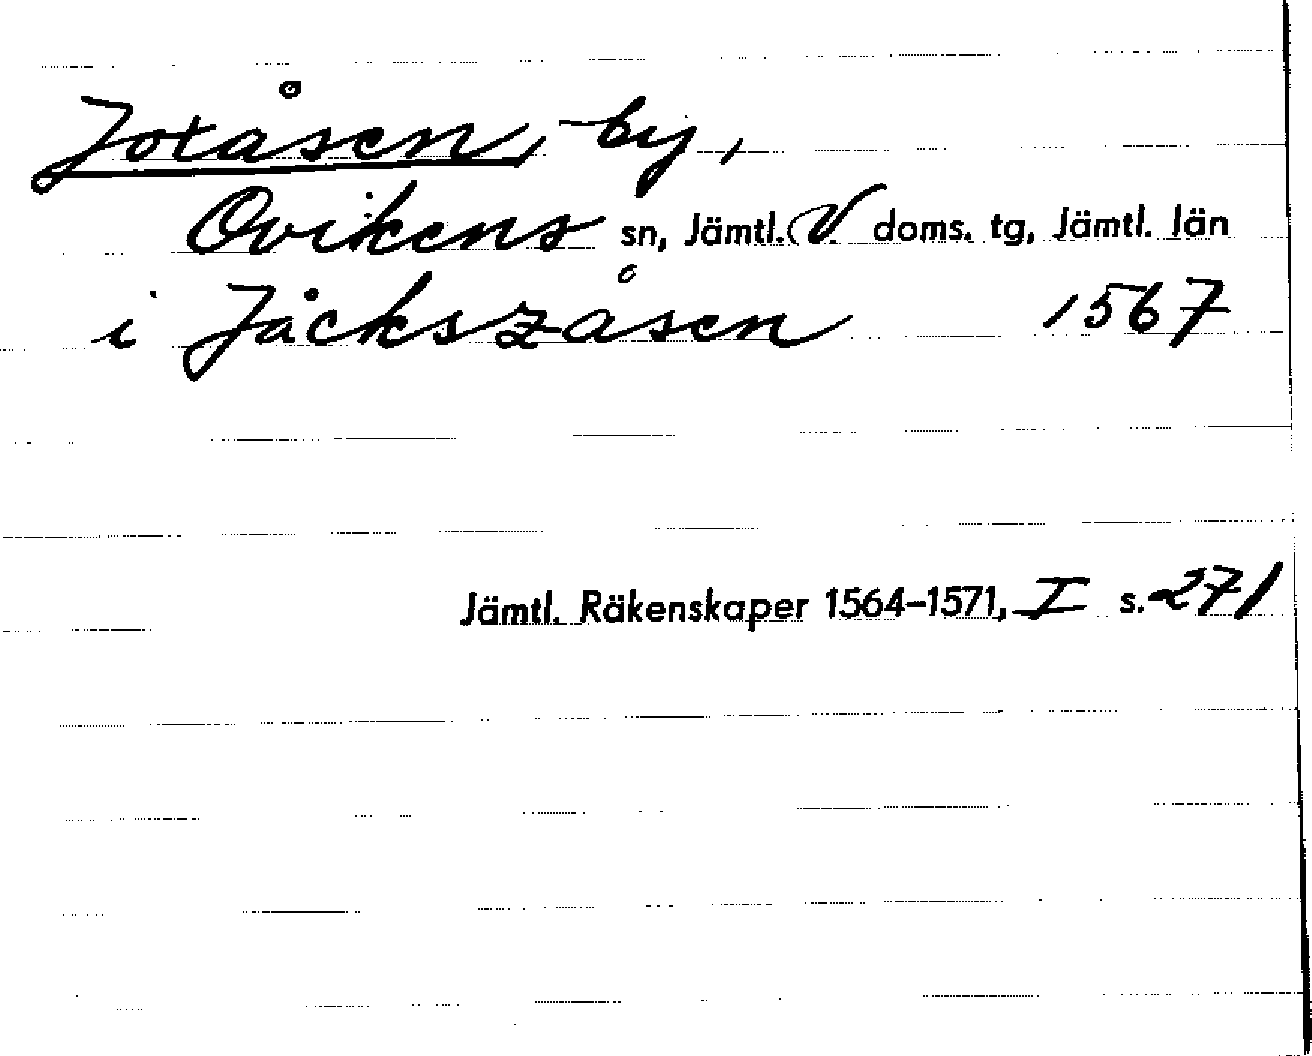 Joxåsen, by,
Ovikens sn, Jämtl. V doms. tg, Jämtl. län
i Jåckszåsen 1567
Jämtl. Räkenskaper 1564-1571, I s. 271